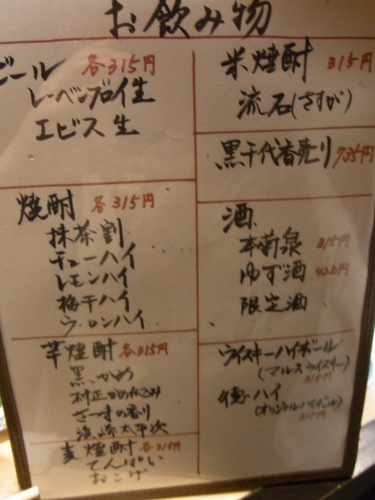 お飲み物
ビール 各315円
レーベンブロイ生
エビス生
焼酎 各315円
抹茶割
チューハイ
レモンハイ
梅干ハイ
ウーロンハイ
芋焼酎 各315円
黒かめ
さつまの香り
麦焼酎 各315円
てんぱい
おこげ
米焼酎 315円
流石(さすが)
黒千代香売り 735円
酒
本菊泉 315円
ゆず酒 420円
限定酒
ウイスキーハイボール
(マルスウイスキー)
315円
ハイ
(オリジナルハイボール)
315円